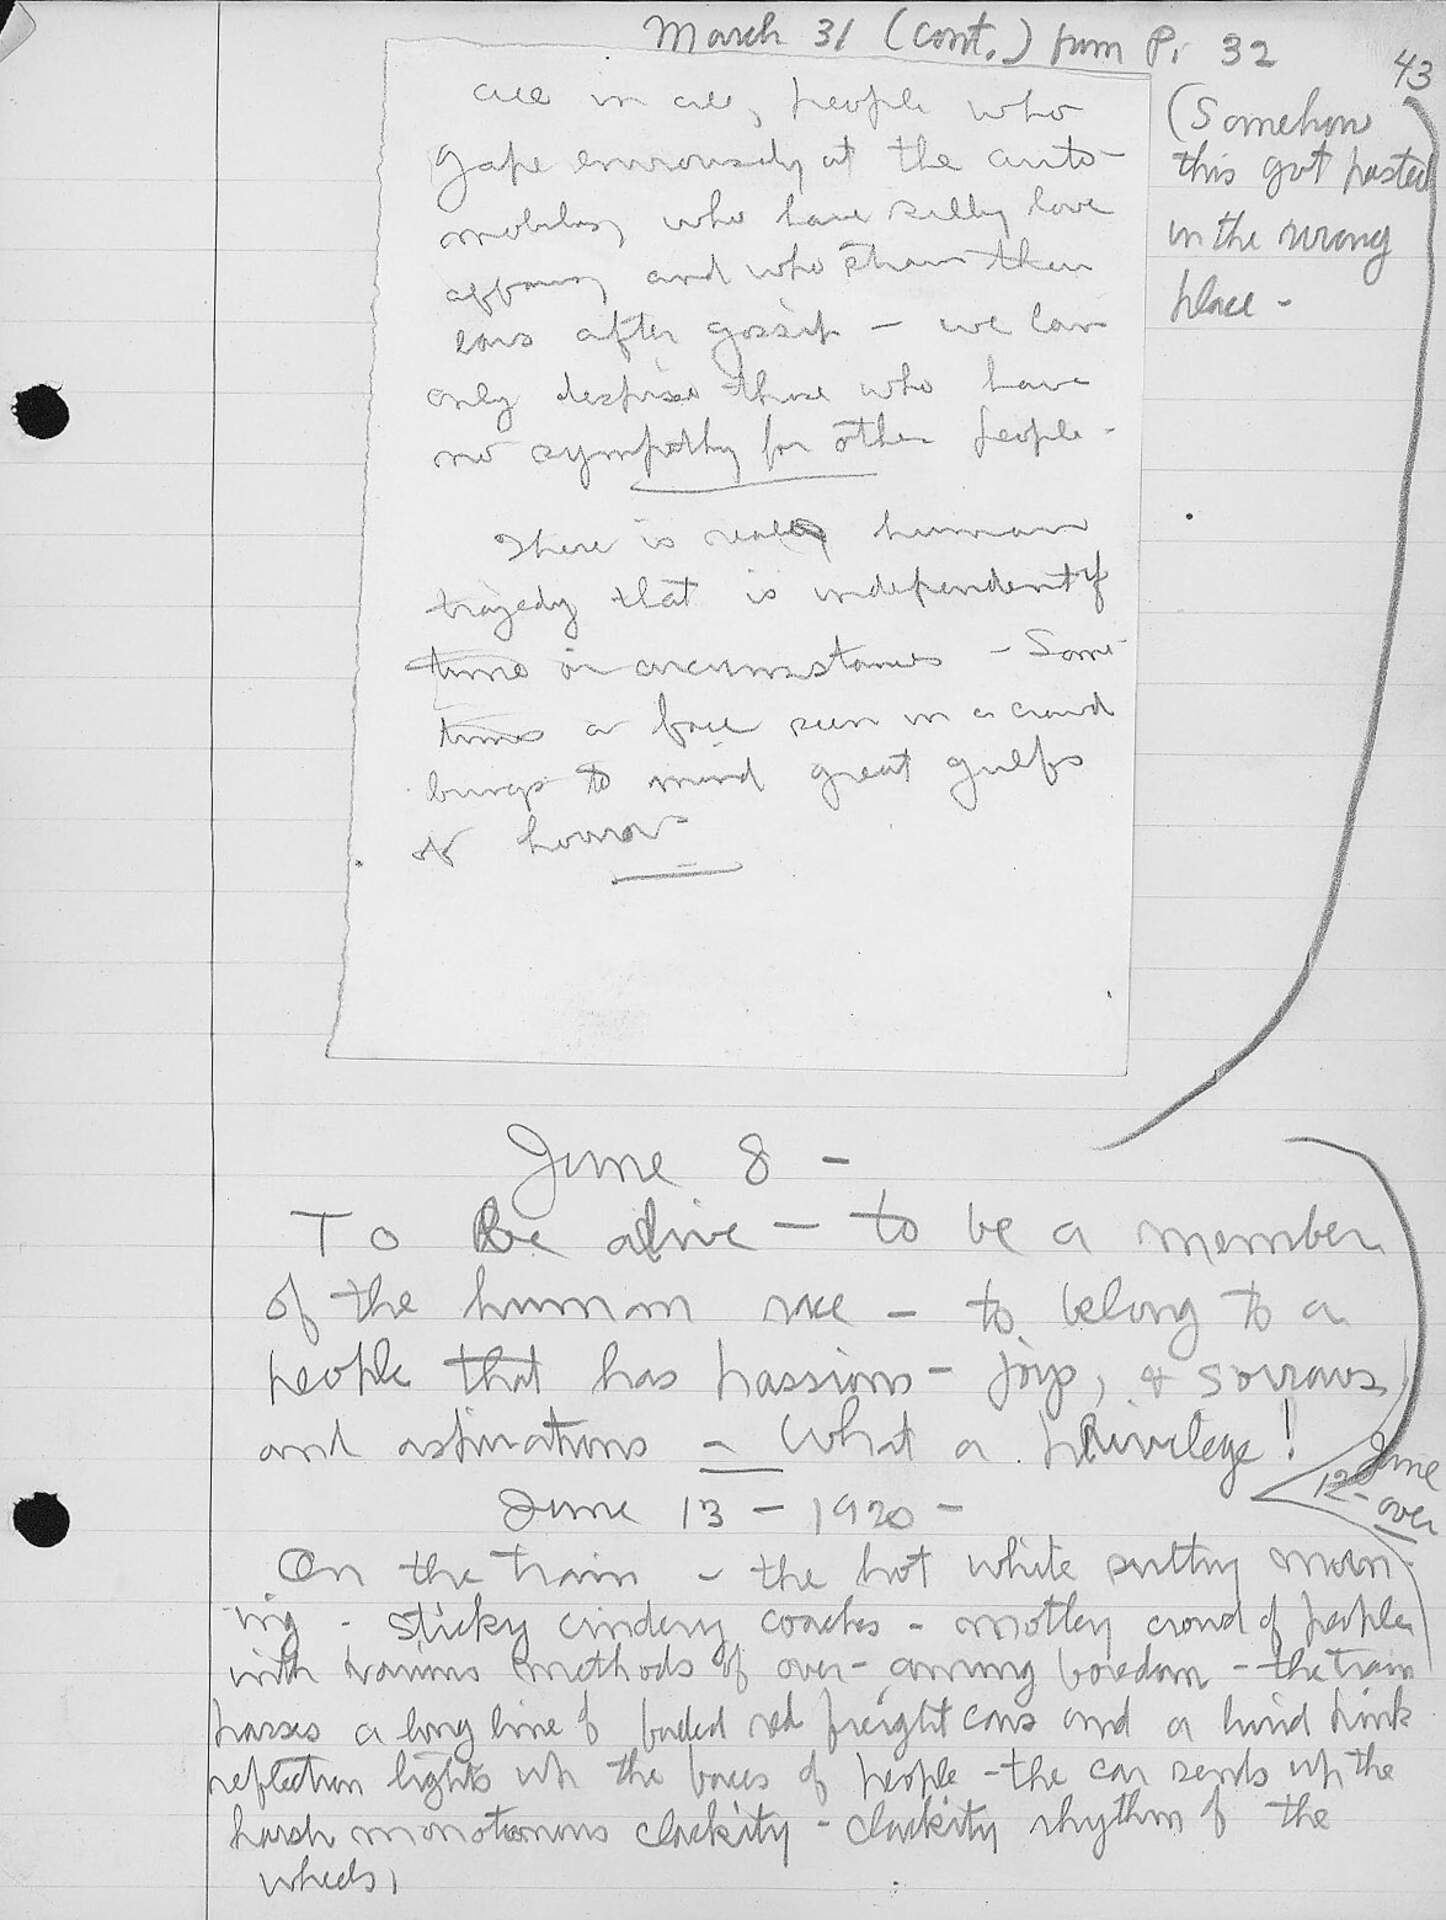 March 31 (cont.) from P. 32
43
(Somehow
this got pasted
in the wrong
place -
all in all, people who
gape enviously at the auto-
mobiles, who have silly love
affairs, and who strain their
ears after gossip - we can
only despise those who have
no sympathy for other people -
There is really human
tragedy that is independent of
time or circumstances - Some
times a face seen in a crowd
brings to mind great gulfs
of horror -
June 8 -
To Be alive - to be a member
of the human race - to belong to a
people that has passions - joys, & sorrows
and aspirations - What a privilege!
June
12 - over
June 13 - 1920 -
On the train - the hot white sultry morn-
ing - sticky cindery coaches - motley crowd of people
with various methods of over-coming boredom - the train
passes a long line of faded red freight cars and a lurid pink
reflection lights up the faces of people - the car sends up the
harsh monotonous clackity - clackity rhythm of the
wheels,